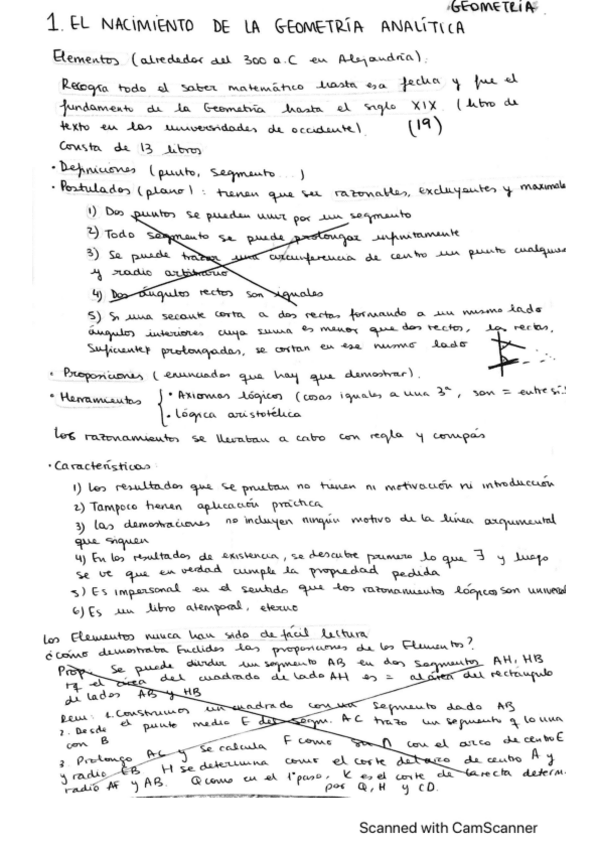 GEOMETRÍA
1. EL NACIMIENTO DE LA GEOMETRÍA ANALÍTICA
Elementos (alrededor del 300 a.C en Alejandría).
Recogía todo el saber matemático hasta esa fecha y fue el
fundamento de la Geometría hasta el siglo XIX (libro de
texto en las universidades de occidente). (19)
Consta de 13 libros
· Definiciones (punto, segmento...)
· Postulados (plano): tienen que ser razonables, excluyentes y maximale
1) Dos puntos se pueden unir por un segmento
2) Todo segmento se puede prolongar infinitamente
3) Se puede trazar una circunferencia de centro un punto cualquiera
y radio arbitrario
4) Dos ángulos rectos son iguales
5) Si una secante corta a dos rectas formando a un mismo lado
ángulos interiores cuya suma es menor que dos rectos, las rectas,
suficiente† prolongadas, se cortan en ese mismo lado
· Proposiciones (enunciados que hay que demostrar).
· Herramientas { · Axiomas lógicos (cosas iguales a una 3ª, son = entre sí)
· Lógica aristotélica
Los razonamientos se llevaban a cabo con regla y compás
· Características:
1) Los resultados que se prueban no tienen ni motivación ni introducción
2) Tampoco tienen aplicación práctica
3) Las demostraciones no incluyen ningún motivo de la línea argumental
que siguen
4) En los resultados de existencia, se descubre primero lo que ∃ y luego
se ve que en verdad cumple la propiedad pedida
5) Es impersonal en el sentido que los razonamientos lógicos son universal
6) Es un libro atemporal, eterno
Los Elementos nunca han sido de fácil lectura
¿Cómo demostraba Euclides las proposiciones de los Elementos?
Prop. Se puede dividir un segmento AB en dos segmentos AH, HB
tq el área del cuadrado de lado AH es = al área del rectángulo
de lados AB y HB
Dem: 1. Construimos un cuadrado con un segmento dado AB
2. Desde el punto medio E del segm. AC trazo un segmento q lo una
con B
3. Prolongo AC y se calcula F como su ∩ con el arco de centro E
y radio EB H se determina como el corte del arco de centro A y
radio AF y AB. Q como en el 1er paso, K es el corte de la recta determ.
por Q, H y CD.
Scanned with CamScanner